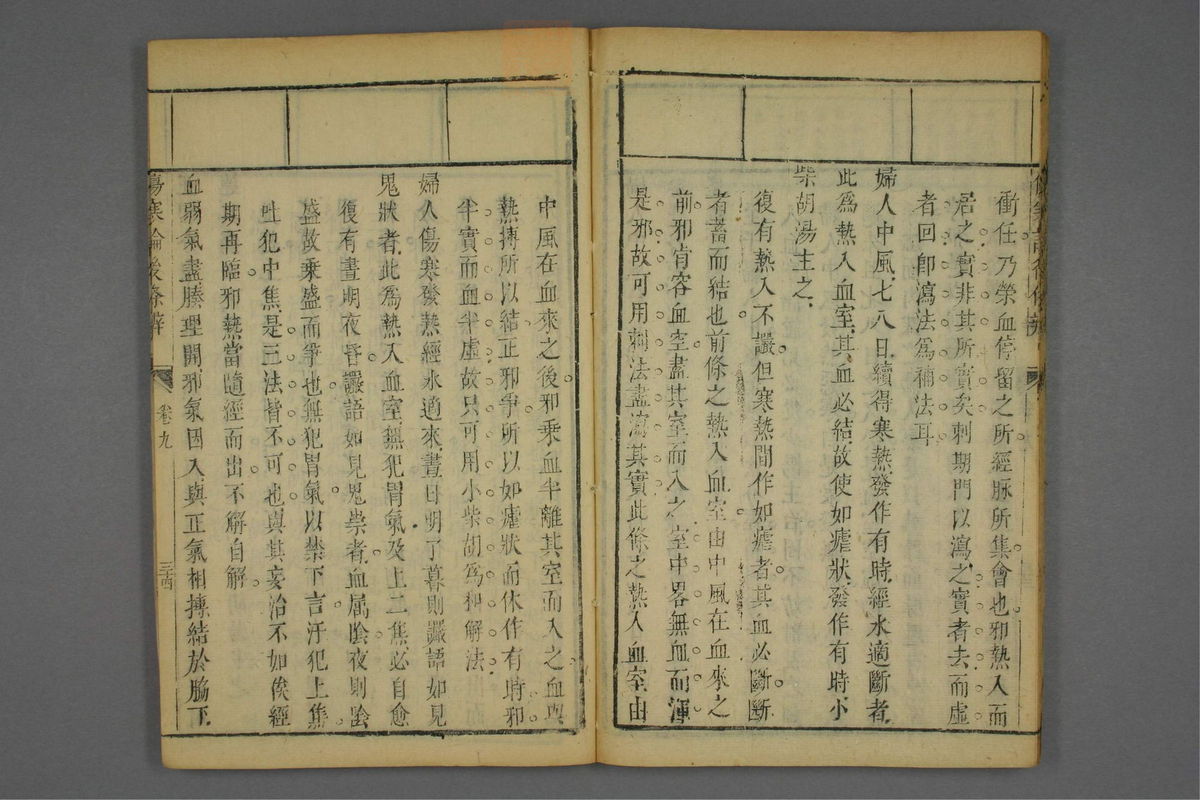 衝任乃榮血停留之所經脉所集會也邪熱入而
居之實非其所實矣刺期門以瀉之實者去而虛
者回卽瀉法爲補法耳
婦人中風七八日續得寒熱發作有時經水適斷者
此爲熱入血室其血必結故使如瘧狀發作有時小
柴胡湯主之
復有熱入不讝但寒熱間作如瘧者其血必斷斷
者蓄而結也前條之熱入血室由中風在血來之
前邪肯容血空盡其室而入之室中畧無血而渾
是邪故可用刺法盡瀉其實此條之熱入血室由
中風在血來之後邪乘血半離其室而入之血與
熱摶所以結正邪爭所以如瘧狀而休作有時邪
半實而血半虛故只可用小柴胡爲和解法
婦人傷寒發熱經水適來晝日明了暮則讝語如見
鬼狀者此爲熱入血室無犯胃氣及上二焦必自愈
復有晝明夜昏讝語如見鬼祟者血属陰夜則陰
盛故乘盛而爭也無犯胃氣以禁下言汗犯上焦
吐犯中焦是三法皆不可也與其妄治不如俟經
期再臨邪熱當隨經而出不解自解
血弱氣盡腠理開邪氣因入與正氣相摶結於脇下
傷寒論後條辨
卷九